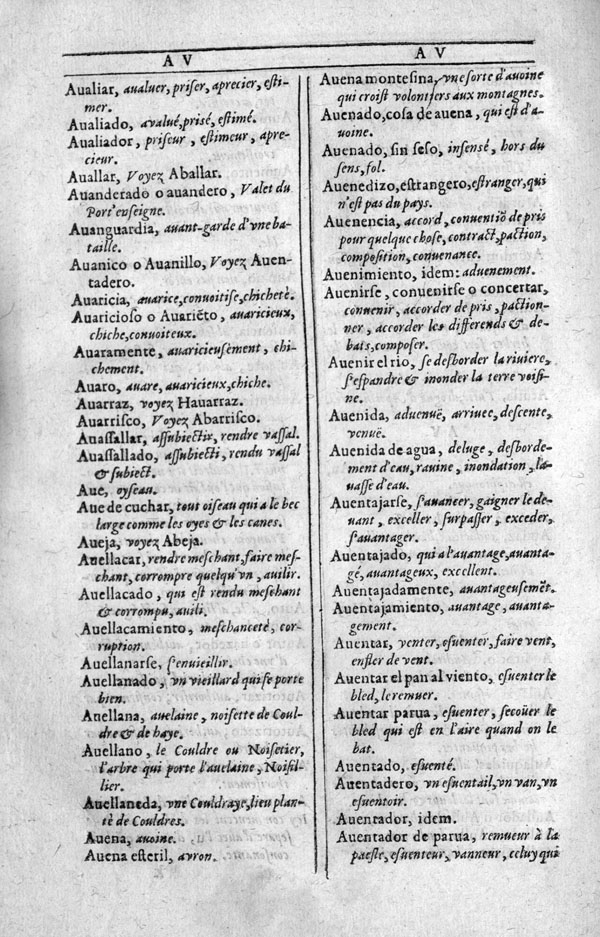 A V
Aualiar, aualuer, priser, aprecier, esti-
mer.
Aualiado, avalué, prisé, estimé.
Aualiador, priseur, estimeur, apre-
cieur.
Auallar, Voyez Aballar.
Auanderado o auandero, Valet du
Port'enseigne.
Auanguardia, auant-garde d'vne ba-
taille.
Auanico o Auanillo, Voyez Auen-
tadero.
Auaricia, auarice, conuoitise, chicheté.
Auaricioso o Auariēto, auaricieux,
chiche, conuoiteux.
Auaramente, auaricieusement, chi-
chement.
Auaro, auare, auaricieux, chiche.
Auarraz, voyez Hauarraz.
Auarrisco, Voyez Abarrisco.
Auaſſallar, aſſubiectir, rendre vaſſal.
Auaſſallado, aſſubiecti, rendu vaſſal
& subiect.
Aue, oyseau.
Aue de cuchar, tout oiseau qui a le bec
large comme les oyes & les canes.
Aueja, voyez Abeja.
Auellacar, rendre meschant, faire mes-
chant, corrompre quelqu'vn, auilir.
Auellacado, qui est rendu meschant
& corrompu, auili.
Auellacamiento, meschanceté, cor-
ruption.
Auellanarse, s'enuieillir.
Auellanado, vn vieillard qui se porte
bien.
Auellana, auelaine, noisette de Coul-
dre & de haye.
Auellano, le Couldre ou Noisetier,
l'arbre qui porte l'auelaine, Noisil-
lier.
Auellaneda, vne Couldraye, lieu plan-
té de Couldres.
Auena, avoine.
Auena esteril, avron.
A V
Auena montesina, vne sorte d'avoine
qui croist volontiers aux montagnes.
Auenado, cosa de auena, qui est d'a-
uoine.
Auenado, sin seso, insensé, hors du
sens, fol.
Auenedizo, estrangero, estranger, qui
n'est pas du pays.
Auenencia, accord, conuentiō de pris
pour quelque chose, contract, paction,
composition, conuenance.
Auenimiento, idem: aduenement.
Auenirse, conuenirse o concertar,
conuenir, accorder de pris, paction-
ner, accorder les differends & de-
bats, composer.
Auenir el rio, se desborder la riuiere,
s'espandre & inonder la terre voisi-
ne.
Auenida, aduenuë, arriuee, descente,
venuë.
Auenida de agua, deluge, desborde-
ment d'eau, rauine, inondation, la-
uasse d'eau.
Auentajarse, s'auancer, gaigner le de-
uant, exceller, surpasser, exceder,
s'auantager.
Auentajado, qui a l'auantage, auanta-
gé, auantageux, excellent.
Auentajadamente, auantageusemēt.
Auentajamiento, auantage, auant-
agement.
Auentar, venter, esuenter, faire vent,
enfler de vent.
Auentar el pan al viento, esuenter le
bled, le remuer.
Auentar parua, esuenter, secoüer le
bled qui est en l'aire quand on le
bat.
Auentado, esuenté.
Auentadero, vn esuentail, vn van, vn
esuentoir.
Auentador, idem.
Auentador de parua, remueur à la
paesle, esuenteur, vanneur, celuy qui